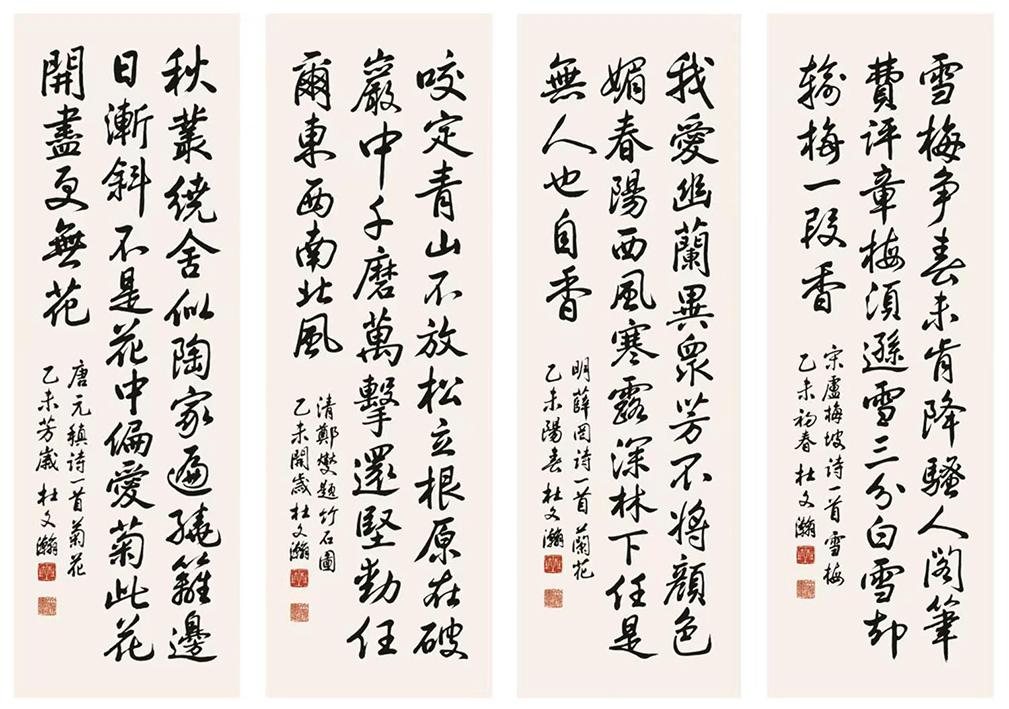 雪梅争春未肯降騷人阁筆
費评章梅須遜雪三分白雪却
输梅一段香
宋盧梅坡诗一首雪梅
乙未初春杜文瀚
我愛幽蘭異眾芳不将顏色
媚春陽西風寒露深林下任是
無人也自香
明薛罔诗一首蘭花
乙未陽春杜文瀚
咬定青山不放松立根原在破
巖中千磨萬擊還堅勁任
爾東西南北風
清鄭燮题竹石圖
乙未開歲杜文瀚
秋叢繞舍似陶家遍繞籬邊
日漸斜不是花中偏愛菊此花
開盡更無花
唐元稹诗一首菊花
乙未芳歲杜文瀚